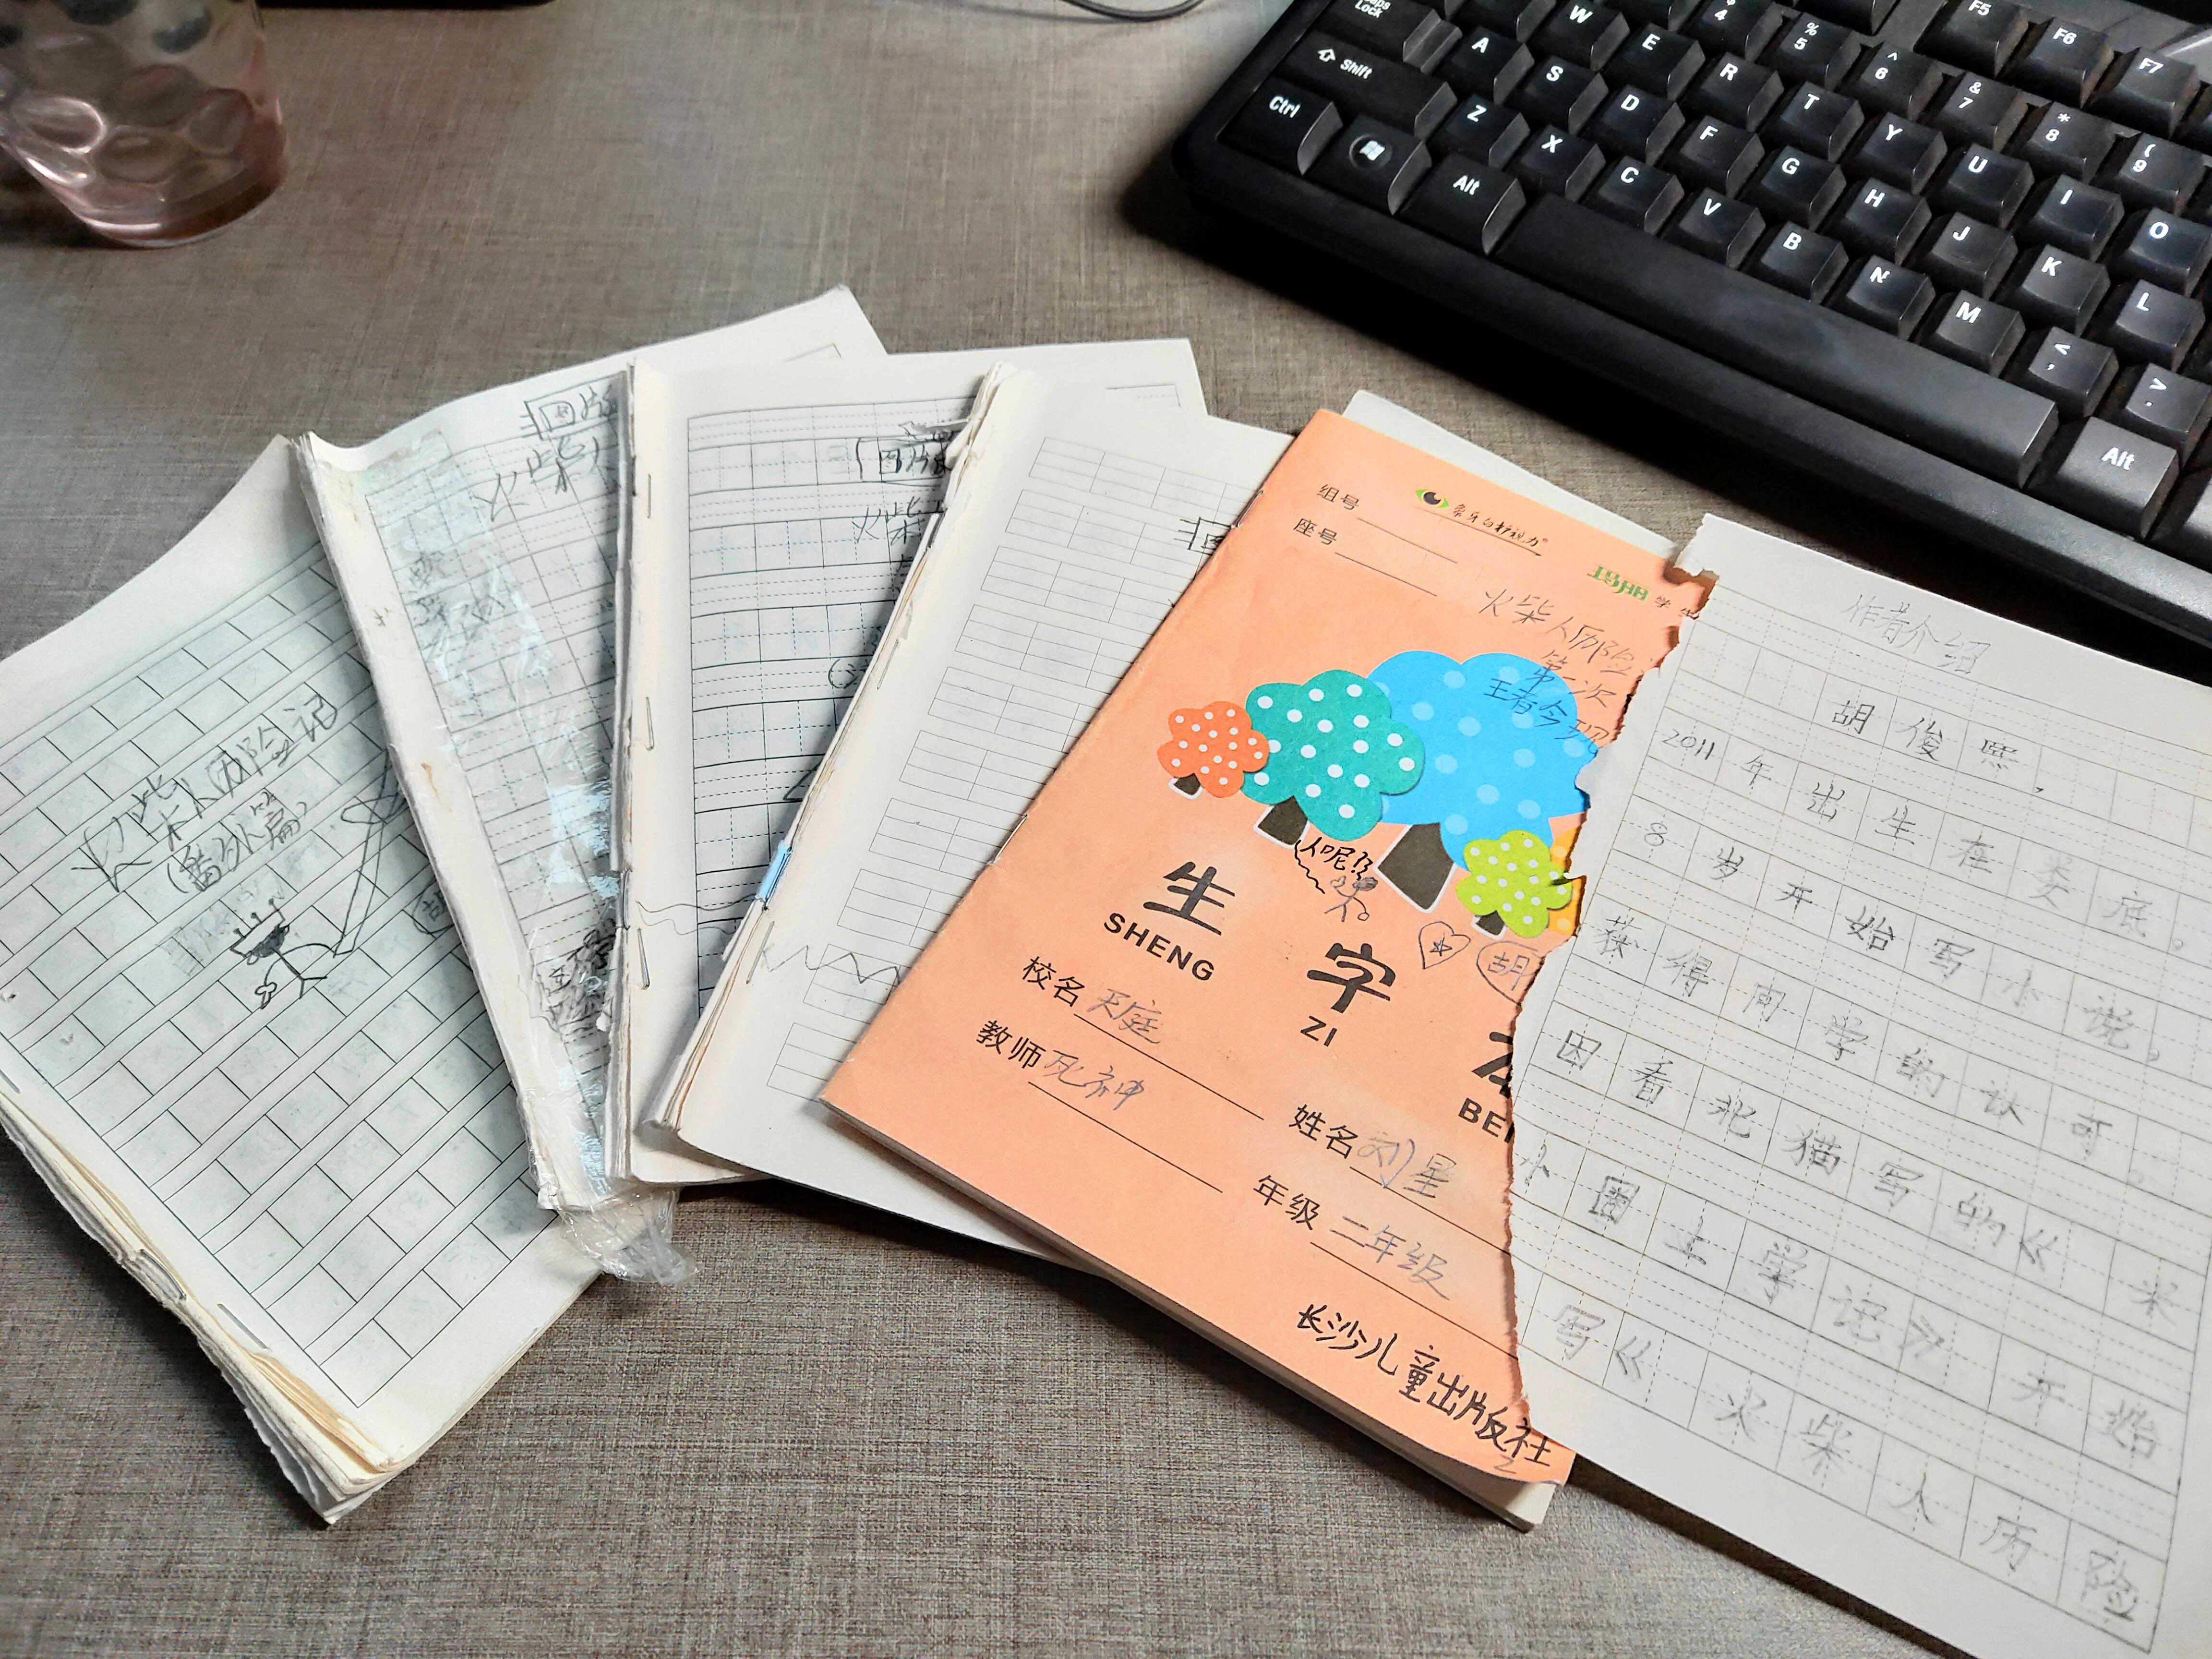 火柴人历险记
(番外篇)
图版
火柴人
图版
火柴
组号
座号
象牙白护视力
玛丽学生
火柴人历险
第二次
王者今
人呢??
生
SHENG
字
ZI
BE
胡
校名 天庭
教师 死神
姓名 刘星
年级 二年级
长沙儿童出版社
作者介绍
胡俊熙,
2011年出生在娄底。
8岁开始写小说。
获得同学的认可,
因看北猫写的《米
小圈上学记》开始
写《火柴人历险
Caps Lock
Shift
Ctrl
Alt
W
E
4
% 5
^ 6
& 7
* 8
( 9
F5
F6
F7
A
S
D
F
G
H
J
K
L
R
T
Y
U
I
O
Z
X
C
V
B
N
M
< ,
> .
Alt